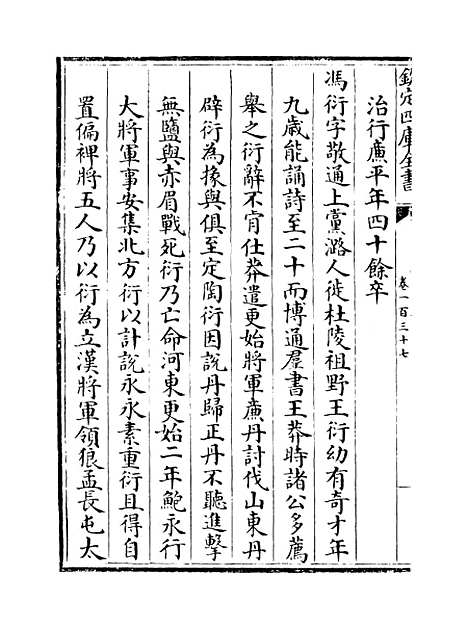 欽定四庫全書
卷一百三十七
治行廉平年四十餘卒
馮衍字敬通上黨潞人徙杜陵祖野王衍幼有奇才年
九歲能誦詩至二十而博通羣書王莽時諸公多薦
舉之衍辭不肯仕莽遣更始將軍廉丹討伐山東丹
辟衍為掾與俱至定陶衍因說丹歸正丹不聽進擊
無鹽與赤眉戰死衍乃亡命河東更始二年鮑永行
大將軍事安集北方衍以計說永永素重衍且得自
置偏裨將五人乃以衍為立漢將軍領狼孟長屯太